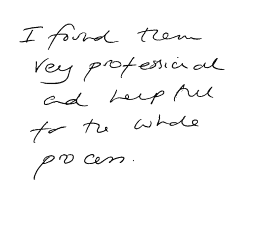 I found them
very professional
and helpful
for the whole
process.